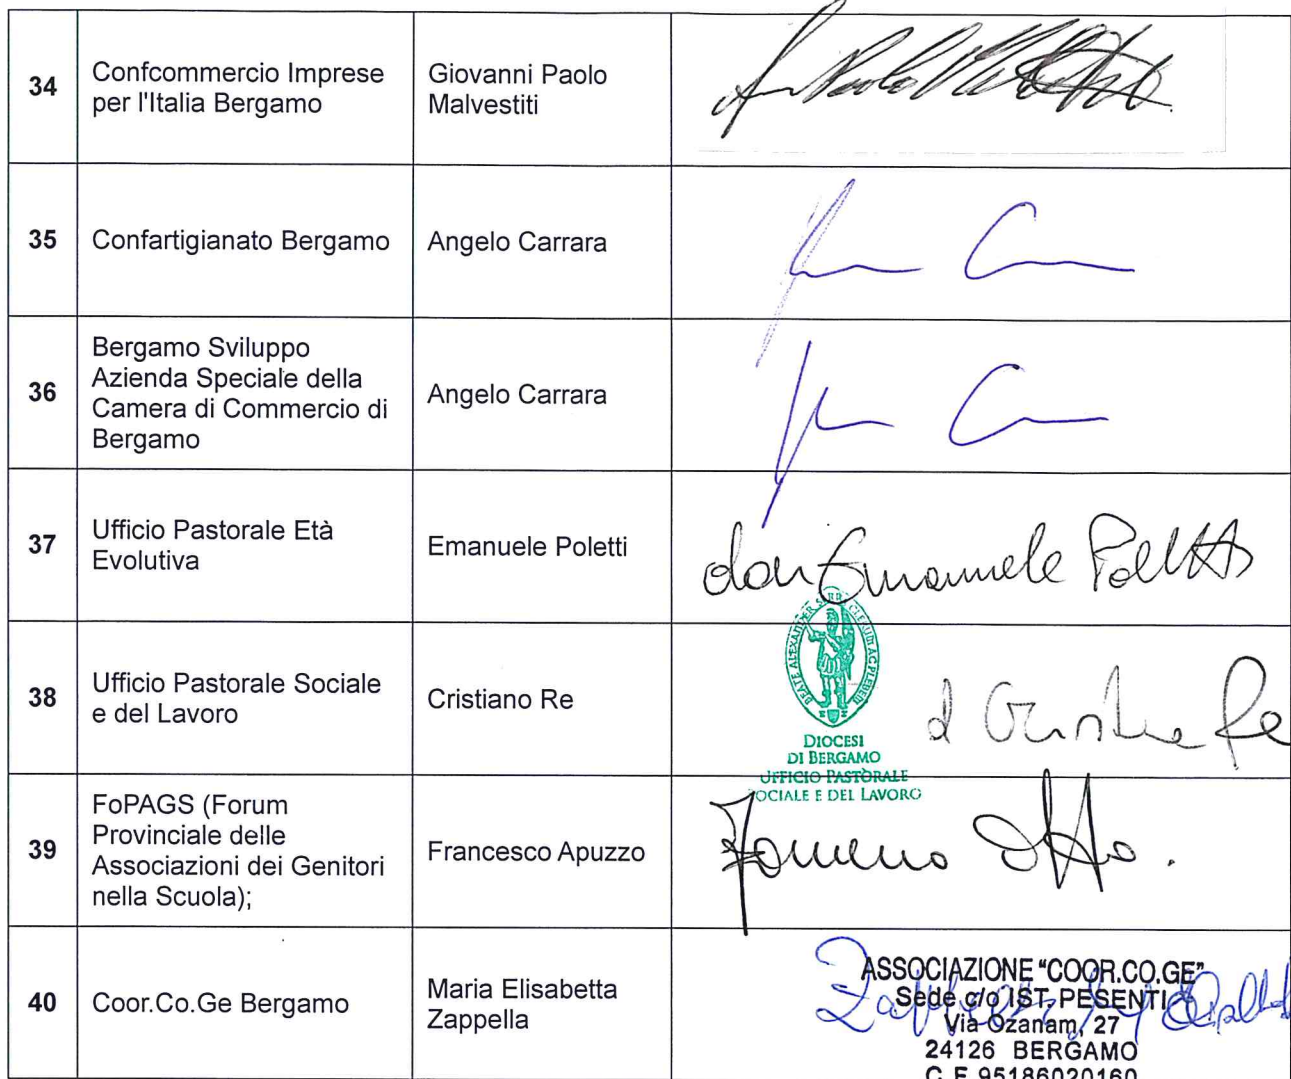 34
Confcommercio Imprese
per l'Italia Bergamo
Giovanni Paolo
Malvestiti
35
Confartigianato Bergamo
Angelo Carrara
36
Bergamo Sviluppo
Azienda Speciale della
Camera di Commercio di
Bergamo
Angelo Carrara
37
Ufficio Pastorale Età
Evolutiva
Emanuele Poletti
don Emanuele Poletti
38
Ufficio Pastorale Sociale
e del Lavoro
Cristiano Re
BEATE ALEXANDER CLERUM AC PLEBEM
DIOCESI
DI BERGAMO
UFFICIO PASTORALE
SOCIALE E DEL LAVORO
39
FoPAGS (Forum
Provinciale delle
Associazioni dei Genitori
nella Scuola);
Francesco Apuzzo
40
Coor.Co.Ge Bergamo
Maria Elisabetta
Zappella
ASSOCIAZIONE "COOR.CO.GE"
Sede c/o IST. PESENTI
Via Ozanam, 27
24126 BERGAMO
C.F. 95186020160